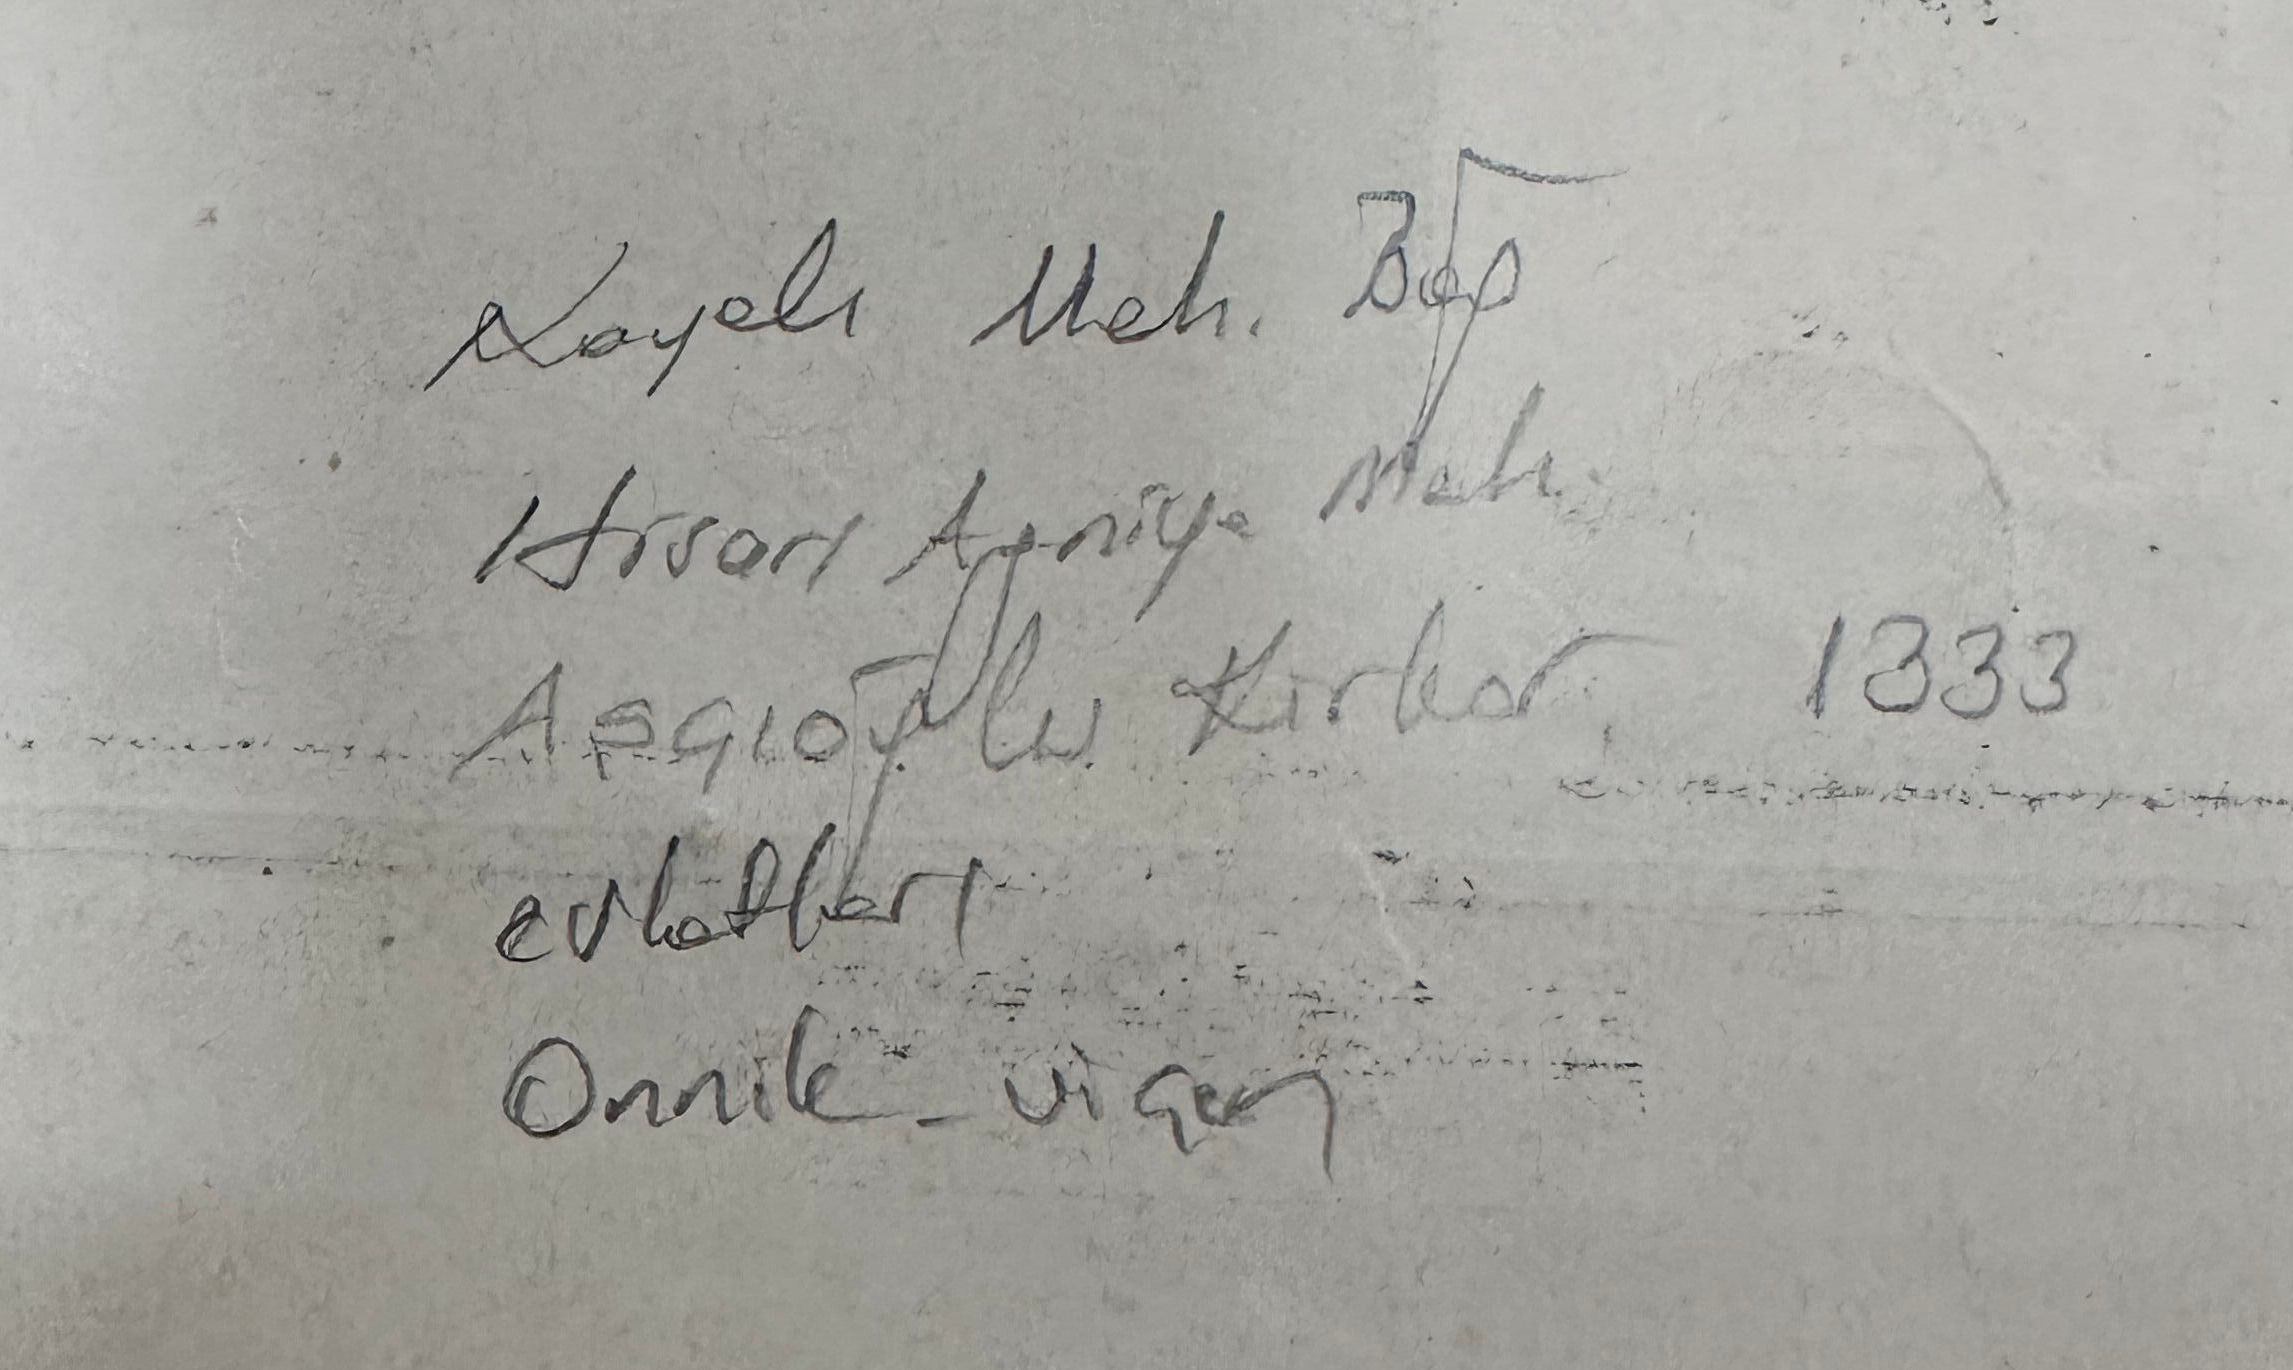 Kayalı Mah. Bağ
Hisarı Ağniya Mah.
Aşçıoğlu Kirkor 1333
evlatları
Onnik - vigen